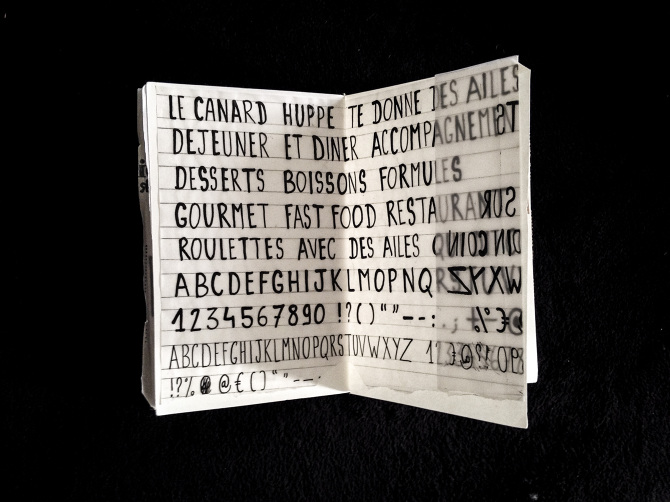 LE CANARD HUPPE TE DONNE DES AILES
DEJEUNER ET DINER ACCOMPAGNEMENTS
DESSERTS BOISSONS FORMULES
GOURMET FAST FOOD RESTAURANT SUR
ROULETTES AVEC DES AILES
ABCDEFGHIJKLMOPNQR
1234567890 !?()“”––:.;
ABCDEFGHIJKLMNOPQRSTUVWXYZ 123
!?% @€()“”––:.